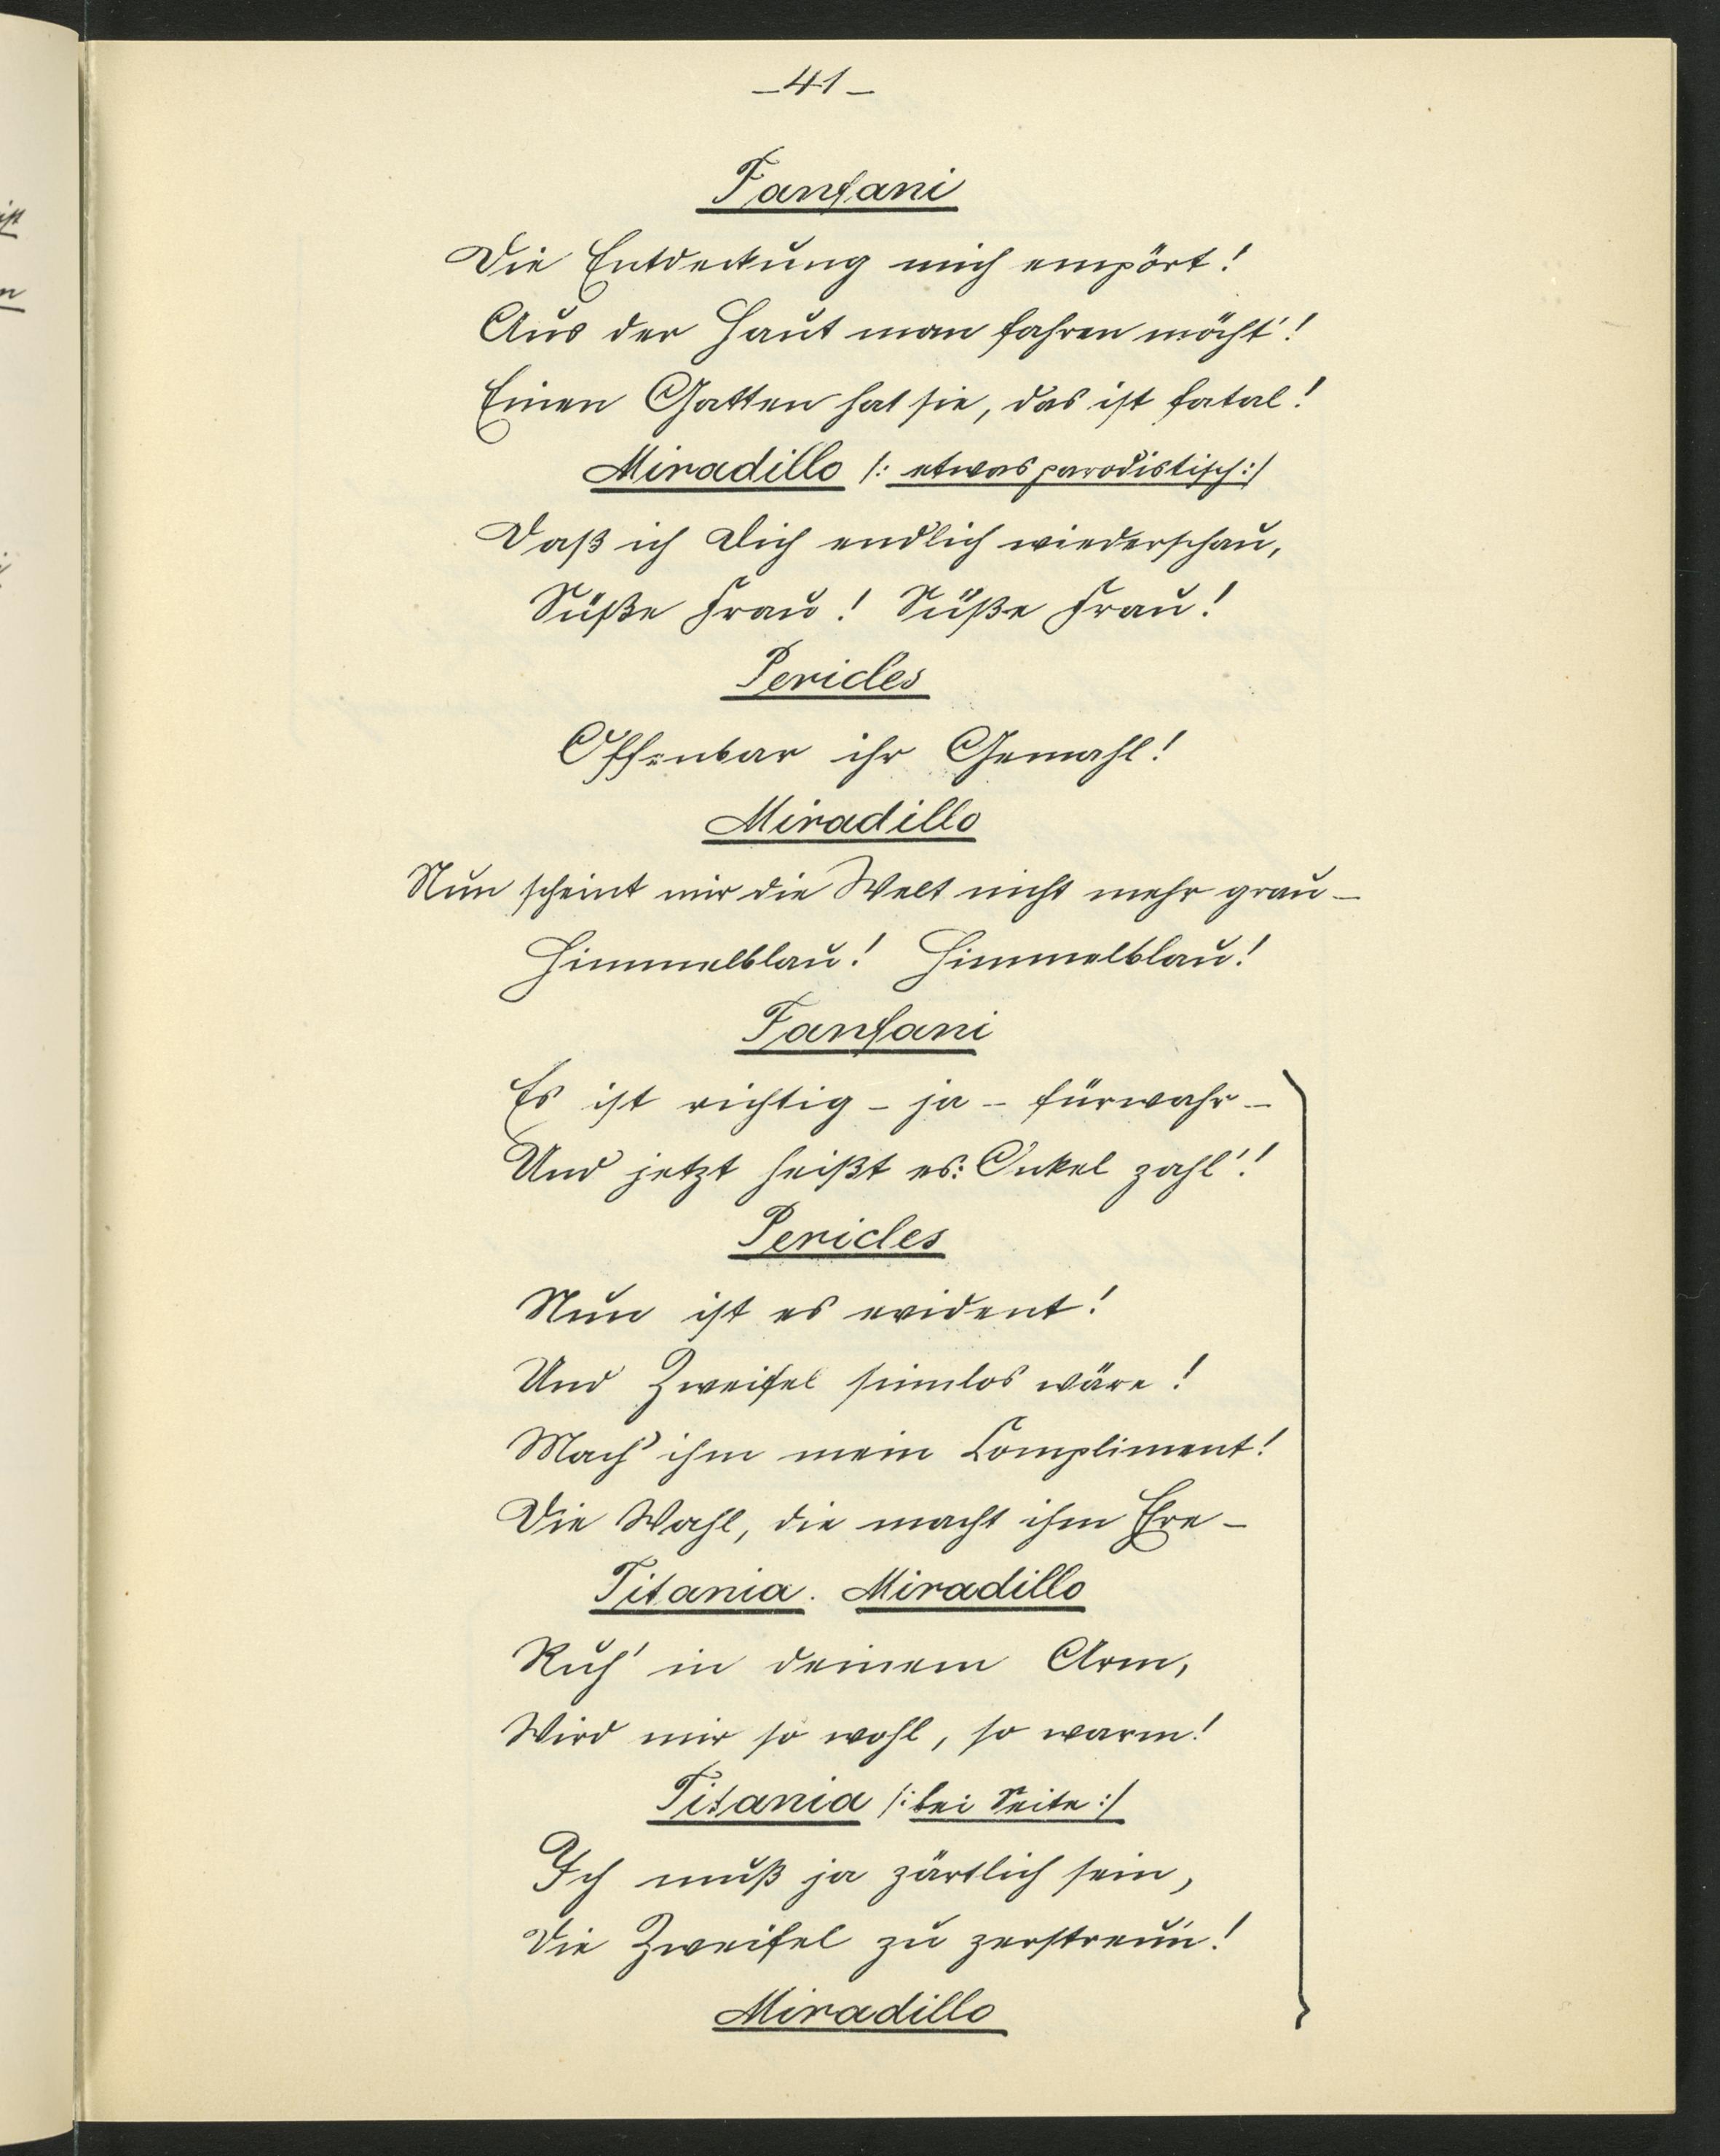 – 41 –
Fanfani
Die Entdeckung mich empört!
Aus der Haut man fahren möcht'!
Einen Gatten hat sie, das ist fatal!
Miradillo /: etwas parodistisch :/
Daß ich Dich endlich wiederschau,
Süße Frau! Süße Frau!
Pericles
Offenbar ihr Gemahl!
Miradillo
Nun scheint mir die Welt nicht mehr grau –
Himmelblau! Himmelblau!
Fanfani
Es ist richtig – ja – fürwahr –
Und jetzt heißt es: Onkel zahl'!
Pericles
Nun ist es evident!
Und Zweifel sinnlos wäre!
Mach' ihm mein Compliment!
Die Wahl, die macht ihm Ehre –
Titania. Miradillo
Ruh' in deinem Arm,
Wird mir so wohl, so warm!
Titania /: bei Seite :/
Ich muß ja zärtlich sein,
Die Zweifel zu zerstreu'n!
Miradillo